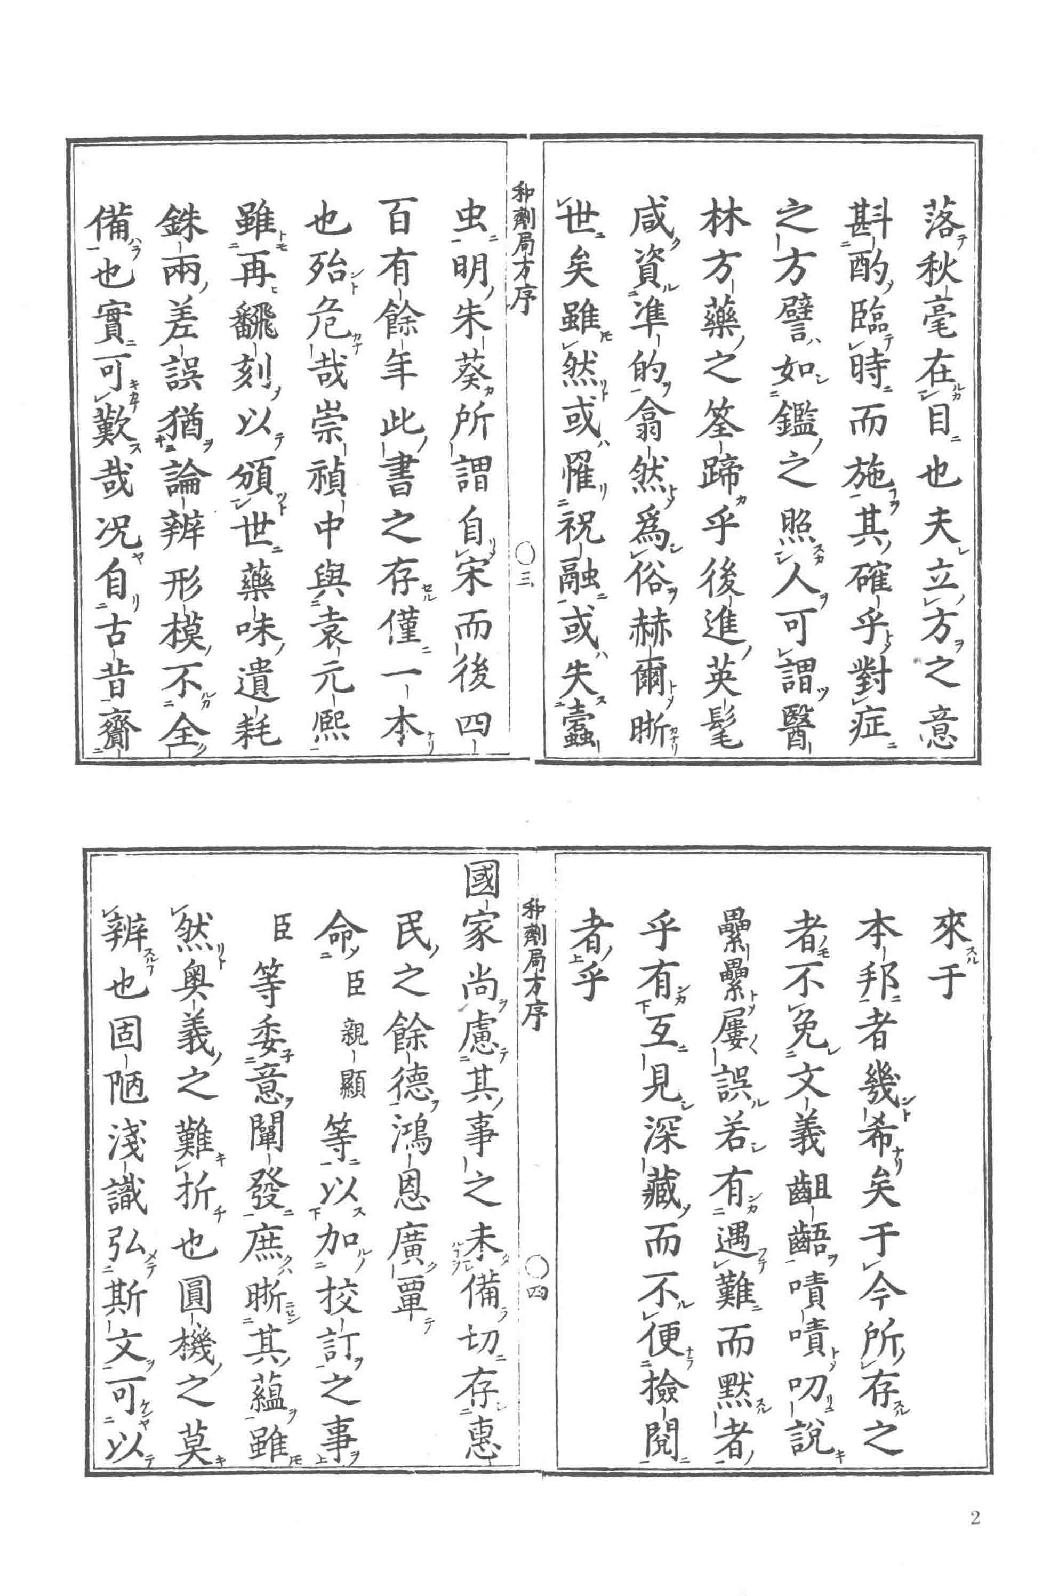 落秋毫在目也夫立方之意
斟酌臨時而施其確乎對症
之方譬如鑑之照人可謂醫
林方藥之筌蹄乎後進英髦
咸資準的翕然爲俗赫爾晰
世矣雖然或罹祝融或失蠹
和劑局方序
〇三
虫明朱葵所謂自宋而後四
百有餘年此書之存僅一本
也殆危哉崇禎中與袁元熙
雖再飜刻以頒世藥味遺耗
銖兩差誤猶論辨形模不全
備也實可歎哉况自古昔齎
來于
本邦者幾希矣于今所存之
者不免文義齟齬嘖嘖叨說
纍纍屢誤若有遇難而默者
乎有互見深藏而不便撿閱
者乎
和劑局方序
〇四
國家尚慮其事之未備切存惠
民之餘德鴻恩廣覃
命臣親顯等以加校訂之事
臣等委意闡發庶晰其蘊雖
然奥義之難折也圓機之莫
辨也固陋淺識弘斯文可以
2